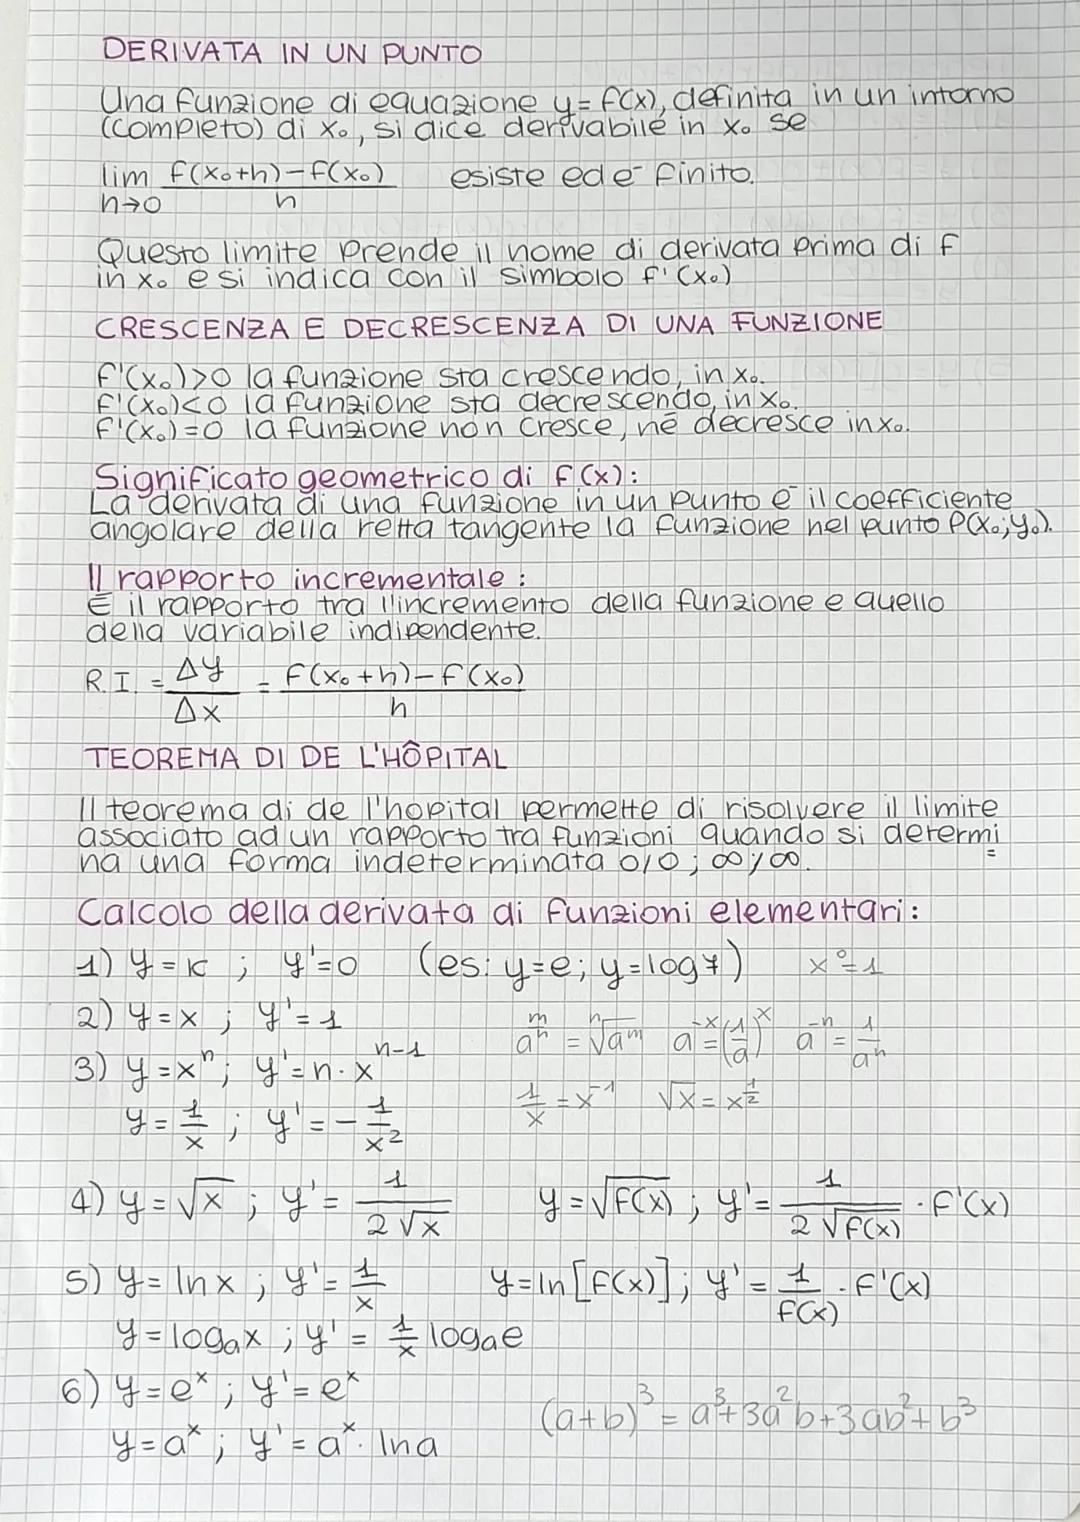 DERIVATA IN UN PUNTO
Una funzione di equazione y=f(x), definita in un intorno
(completo) di x₀, si dice derivabile in x₀ se
lim f(x₀+h)-f(x₀) / h esiste ed è finito.
h→0
Questo limite prende il nome di derivata prima di f
in x₀ e si indica con il simbolo f'(x₀)
CRESCENZA E DECRESCENZA DI UNA FUNZIONE
f'(x₀)>0 la funzione sta crescendo, in x₀.
f'(x₀)<0 la funzione sta decrescendo, in x₀.
f'(x₀)=0 la funzione non cresce, né decresce in x₀.
Significato geometrico di f(x):
La derivata di una funzione in un punto è il coefficiente
angolare della retta tangente la funzione nel punto P(x₀;y₀).
Il rapporto incrementale:
È il rapporto tra l'incremento della funzione e quello
della variabile indipendente.
R.I. = Δy/Δx = f(x₀+h)-f(x₀) / h
TEOREMA DI DE L'HÔPITAL
Il teorema di de l'hopital permette di risolvere il limite
associato ad un rapporto tra funzioni quando si determi
na una forma indeterminata 0/0; ∞/∞.
Calcolo della derivata di funzioni elementari:
1) y=k ; y'=0 (es: y=e; y=log7) x⁰=1
2) y=x ; y'=1 a^(m/n) = ⁿ√aᵐ a^(-x)=(1/a)^x a^(-n)=1/aⁿ
3) y=xⁿ; y'=n·x^(n-1)
y=1/x ; y'=-1/x² 1/x=x^(-1) √x=x^(1/2)
4) y=√x ; y'=1/(2√x) y=√f(x) ; y'=1/(2√f(x)) · f'(x)
5) y=ln x ; y'=1/x y=ln[f(x)]; y'=1/f(x) · f'(x)
y=logₐx ; y'=1/x logₐe
6) y=eˣ ; y'=eˣ
(a+b)³=a³+3a²b+3ab²+b³
y=aˣ ; y'=aˣ·lna